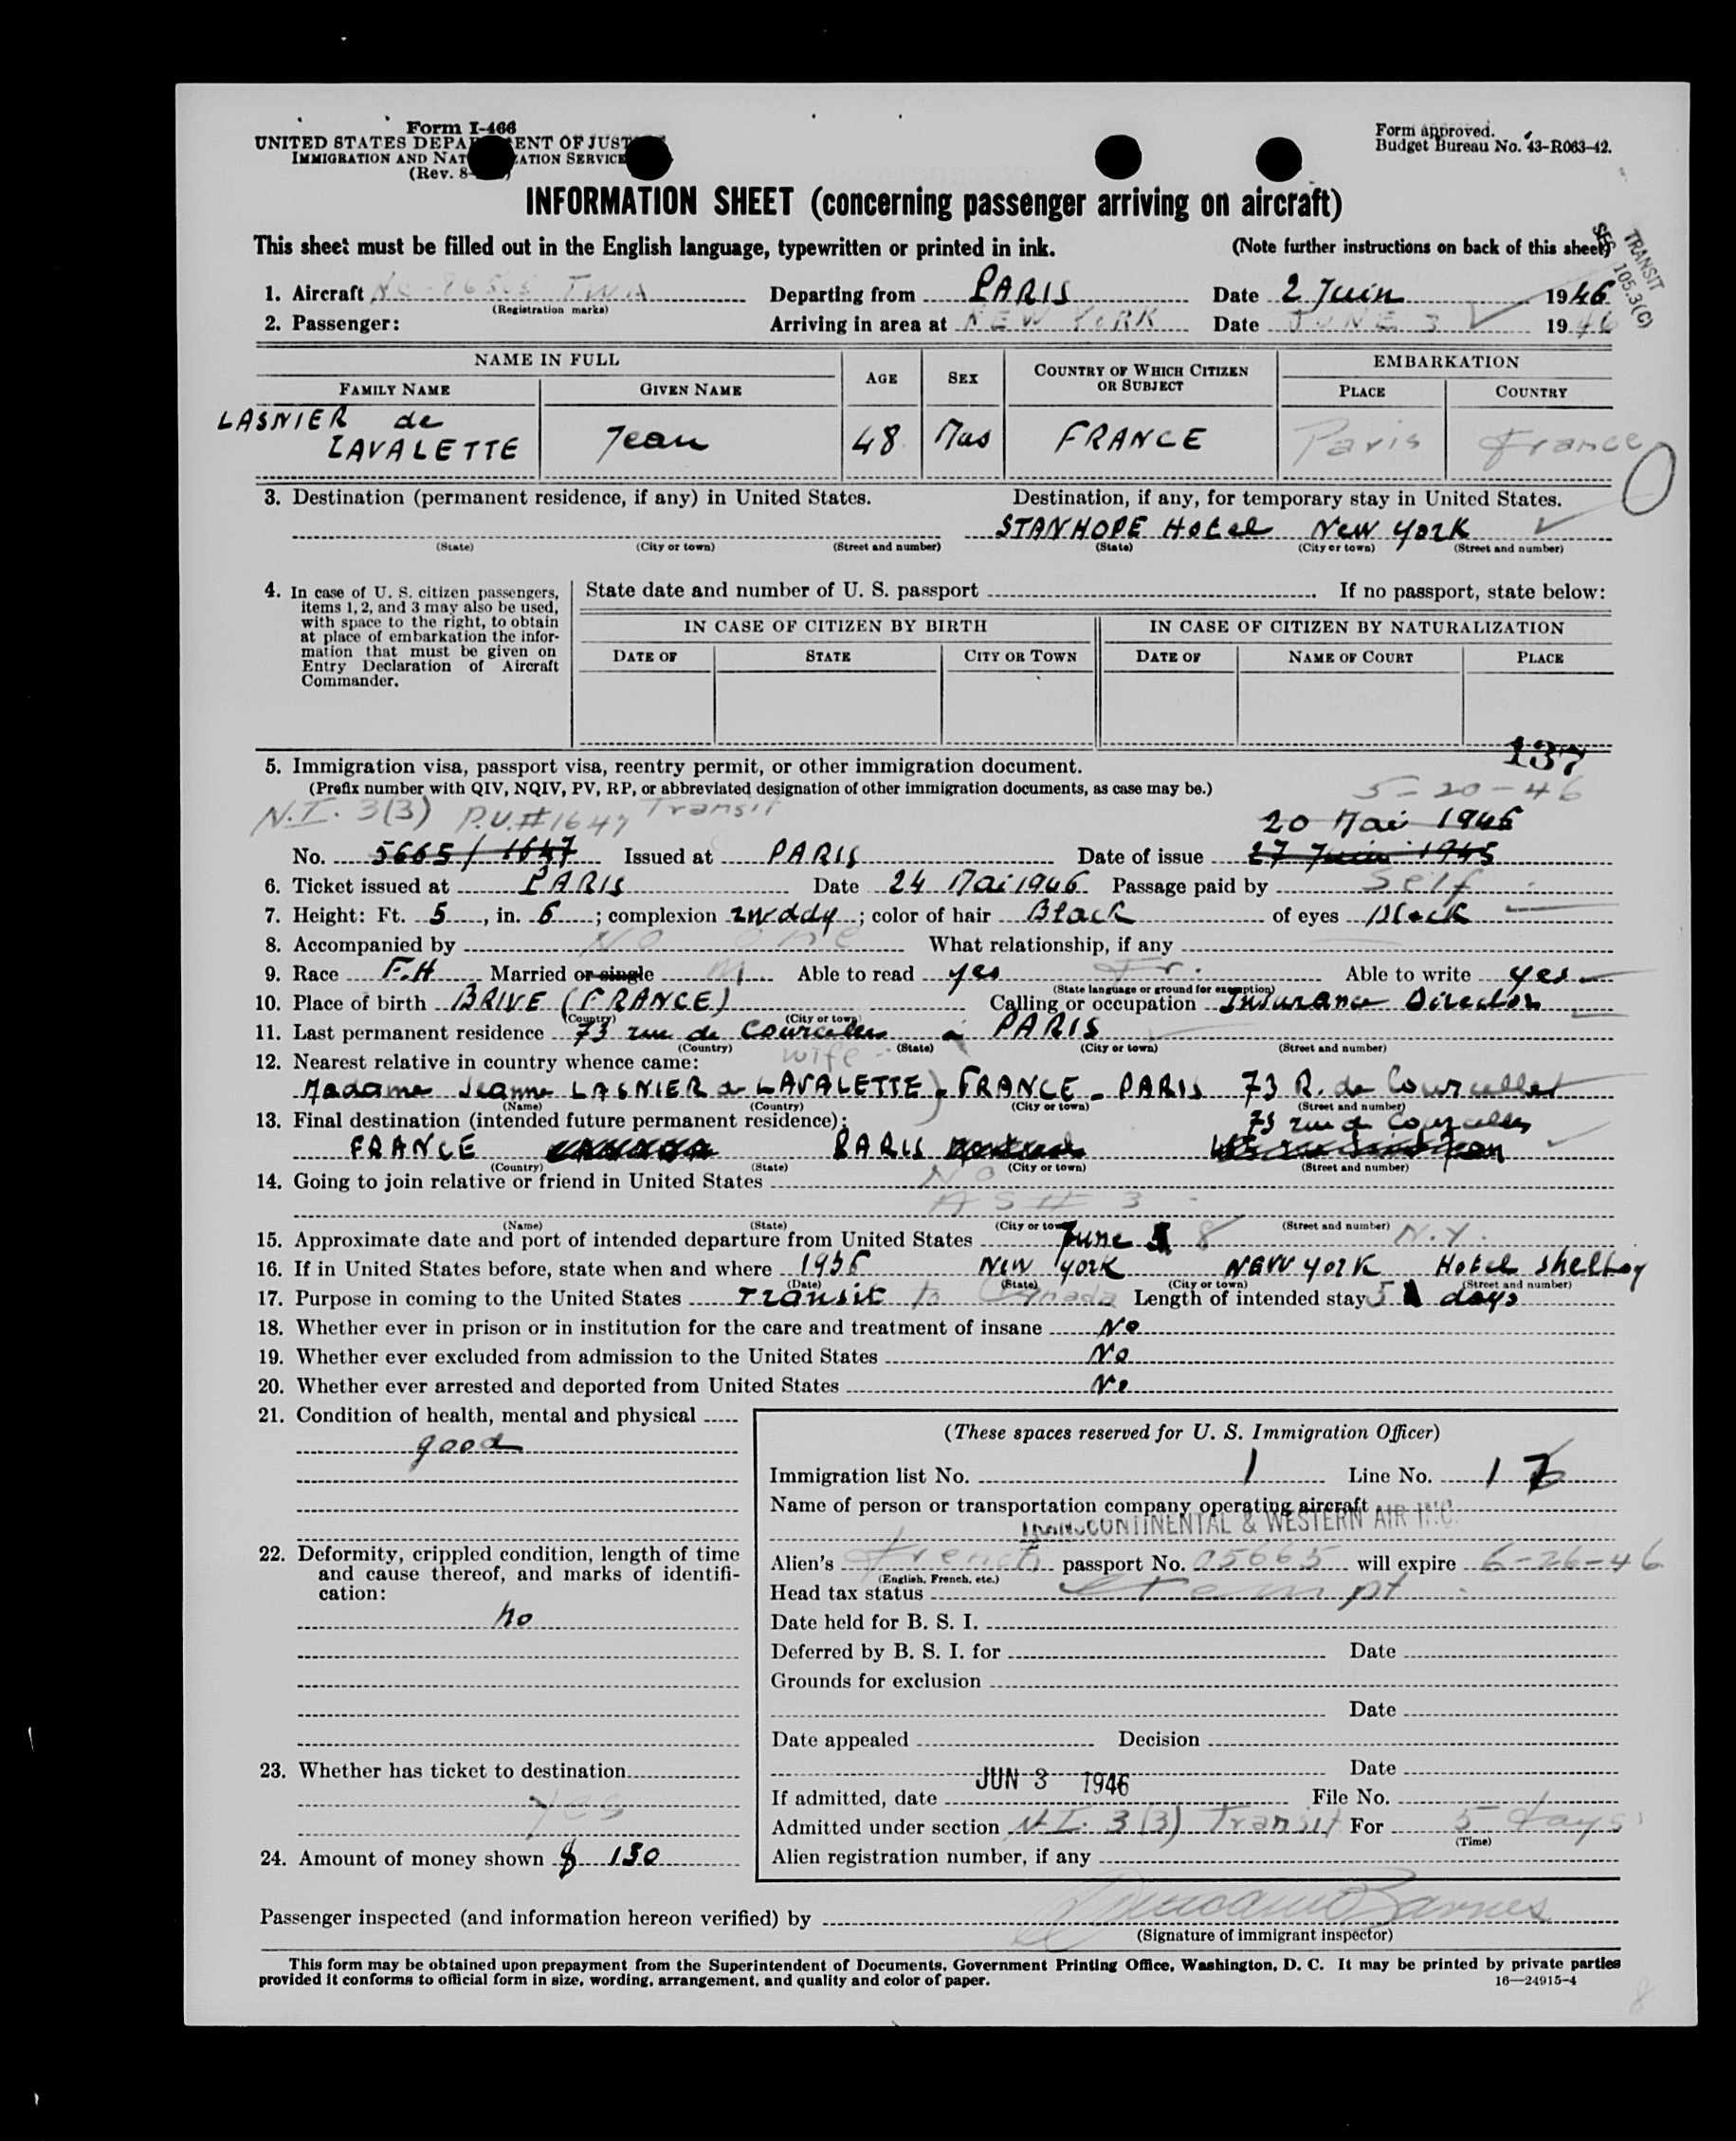 Form I-466
UNITED STATES DEPA ENT OF JUST
IMMIGRATION AND NAT ZATION SERVICE
(Rev. 8-
Form approved.
Budget Bureau No. 43-R063-42.
INFORMATION SHEET (concerning passenger arriving on aircraft)
This sheet must be filled out in the English language, typewritten or printed in ink. (Note further instructions on back of this sheet)
TRANSIT
SEC 105.3(C)
1. Aircraft TWA Departing from PARIS Date 2 Juin 1946
(Registration marks)
2. Passenger: Arriving in area at NEW YORK Date JUNE 3 1946
NAME IN FULL AGE SEX COUNTRY OF WHICH CITIZEN OR SUBJECT EMBARKATION
FAMILY NAME GIVEN NAME PLACE COUNTRY
LASNIER de
LAVALETTE Jean 48 Mas FRANCE Paris France
3. Destination (permanent residence, if any) in United States. Destination, if any, for temporary stay in United States.
STANHOPE Hotel New York
(State) (City or town) (Street and number) (State) (City or town) (Street and number)
4. In case of U. S. citizen passengers,
items 1, 2, and 3 may also be used,
with space to the right, to obtain
at place of embarkation the infor-
mation that must be given on
Entry Declaration of Aircraft
Commander.
State date and number of U. S. passport If no passport, state below:
IN CASE OF CITIZEN BY BIRTH IN CASE OF CITIZEN BY NATURALIZATION
DATE OF STATE CITY OR TOWN DATE OF NAME OF COURT PLACE
137
5. Immigration visa, passport visa, reentry permit, or other immigration document.
(Prefix number with QIV, NQIV, PV, RP, or abbreviated designation of other immigration documents, as case may be.) 5-20-46
N.I. 3(3) P.V.# 1647 Transit
20 Mai 1946
No. 5665 / 1647 Issued at PARIS Date of issue 27 Juin 1945
6. Ticket issued at PARIS Date 24 Mai 1946 Passage paid by Self
7. Height: Ft. 5, in. 6; complexion ; color of hair Black of eyes Black
8. Accompanied by No one What relationship, if any
9. Race F.H Married or single M Able to read yes Fr. Able to write yes
(State language or ground for exemption)
10. Place of birth BRIVE (FRANCE) Calling or occupation Insurance Director
(Country) (City or town)
11. Last permanent residence 73 rue de Courcelles à PARIS
(Country) (State) (City or town) (Street and number)
12. Nearest relative in country whence came: wife
Madame Jeanne LASNIER de LAVALETTE - FRANCE - PARIS 73 R. de Courcelles
(Name) (Country) (City or town) (Street and number)
13. Final destination (intended future permanent residence): 73 rue de Courcelles
FRANCE PARIS
(Country) (State) (City or town) (Street and number)
14. Going to join relative or friend in United States No
AS # 3
(Name) (State) (City or town) (Street and number)
15. Approximate date and port of intended departure from United States June 8 N.Y.
16. If in United States before, state when and where 1936 New York NEW YORK Hotel
(Date) (State) (City or town) (Street and number)
17. Purpose in coming to the United States Transit to Canada Length of intended stay 5 days
18. Whether ever in prison or in institution for the care and treatment of insane No
19. Whether ever excluded from admission to the United States No
20. Whether ever arrested and deported from United States No
21. Condition of health, mental and physical
good
22. Deformity, crippled condition, length of time
and cause thereof, and marks of identifi-
cation:
no
23. Whether has ticket to destination
yes
24. Amount of money shown $ 150
(These spaces reserved for U. S. Immigration Officer)
Immigration list No. 1 Line No. 1
Name of person or transportation company operating aircraft
TRANSCONTINENTAL & WESTERN AIR INC.
Alien's French passport No. 05665 will expire 6-26-46
(English, French, etc.)
Head tax status Exempt
Date held for B. S. I.
Deferred by B. S. I. for Date
Grounds for exclusion
Date
Date appealed Decision
Date
If admitted, date JUN 3 1946 File No.
Admitted under section N.I. 3(3) Transit For 5 days
(Time)
Alien registration number, if any
Passenger inspected (and information hereon verified) by Barnes
(Signature of immigrant inspector)
This form may be obtained upon prepayment from the Superintendent of Documents, Government Printing Office, Washington, D. C. It may be printed by private parties
provided it conforms to official form in size, wording, arrangement, and quality and color of paper. 16—24915-4
8